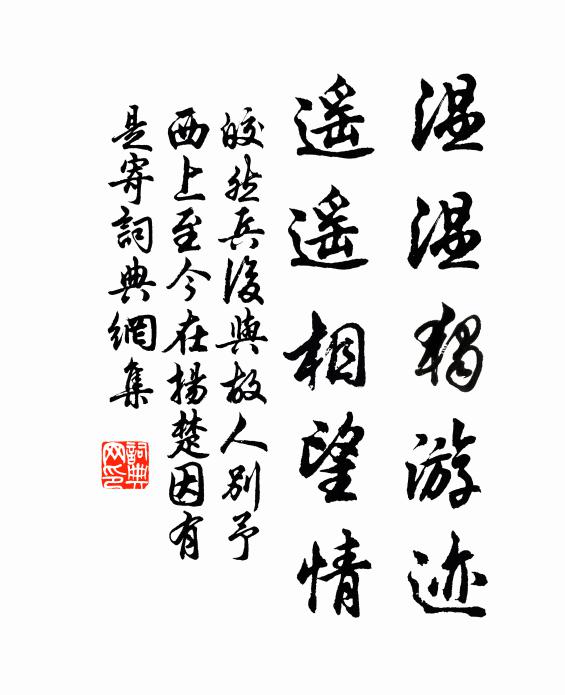 温温独游迹
遥遥相望情
皎然兵後與故人别予
西上至今在揚楚因有
是寄詞典網集
詞典
网印